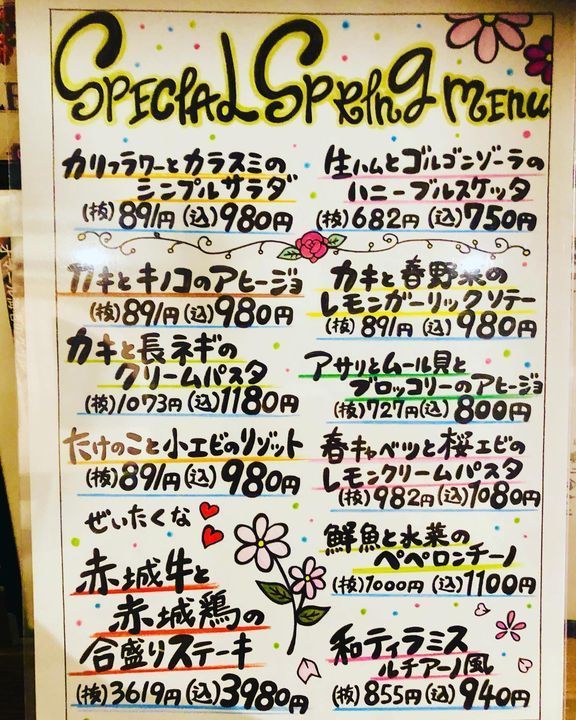 SPECIAL SPRING MENU
カリフラワーとカラスミの
シンプルサラダ
(抜)891円(込)980円
生ハムとゴルゴンゾーラの
ハニーブルスケッタ
(抜)682円(込)750円
カキとキノコのアヒージョ
(抜)891円(込)980円
カキと春野菜の
レモンガーリックソテー
(抜)891円(込)980円
カキと長ネギの
クリームパスタ
(抜)1073円(込)1180円
アサリとムール貝と
ブロッコリーのアヒージョ
(抜)727円(込)800円
たけのこと小エビのリゾット
(抜)891円(込)980円
春キャベツと桜エビの
レモンクリームパスタ
(抜)982円(込)1080円
ぜいたくな
赤城牛と
赤城鶏の
合盛りステーキ
(抜)3619円(込)3980円
鮮魚と水菜の
ペペロンチーノ
(抜)1000円(込)1100円
和ティラミス
ルチアーノ風
(抜)855円(込)940円